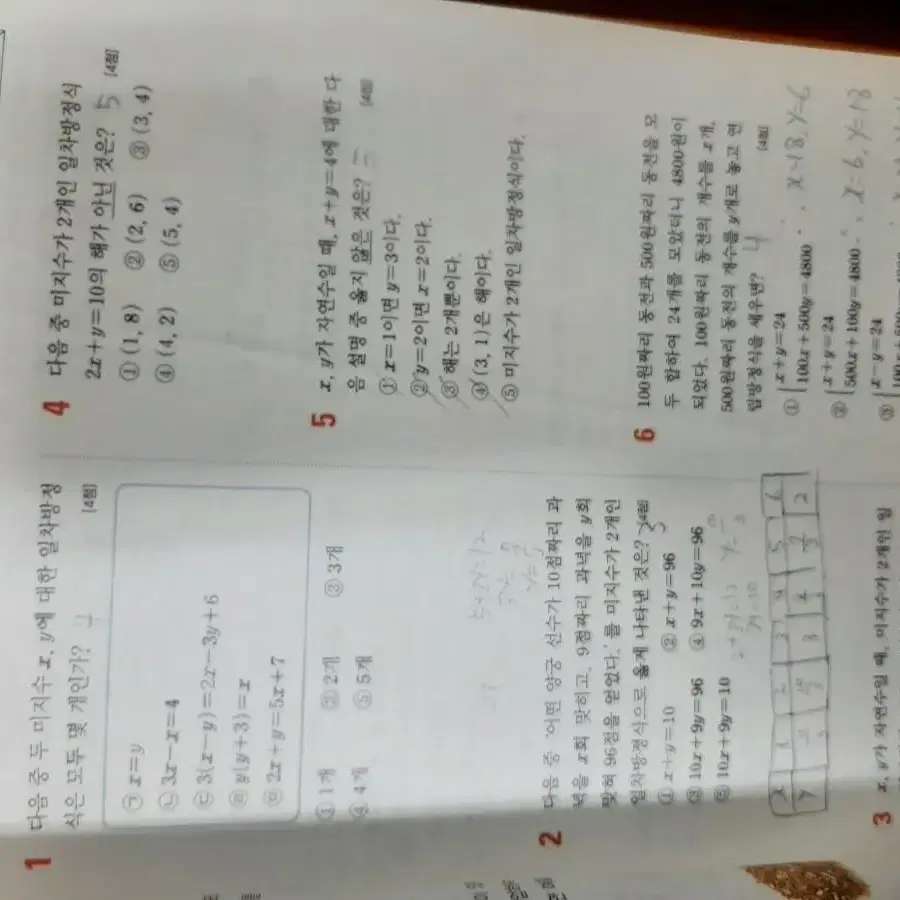 1 다음 중 두 미지수 x, y에 대한 일차방정
식은 모두 몇 개인가? 4 [4점]
㉠ x=y
㉡ 3x-x=4
㉢ 3(x-y)=2x-3y+6
㉣ y(y+3)=x
㉤ 2x+y=5x+7
① 1개 ② 2개 ③ 3개
④ 4개 ⑤ 5개
2 다음 중 '어떤 양궁 선수가 10점짜리 과
녁을 x회 맞히고, 9점짜리 과녁을 y회
맞혀 96점을 얻었다.'를 미지수가 2개인
일차방정식으로 옳게 나타낸 것은? [4점]
① x+y=10 ② x+y=96
③ 10x+9y=96 ④ 9x+10y=96
⑤ 10x+9y=10
x 1 2 3 4 5 6
y 3 2
3 x, y가 자연수일 때, 미지수가 2개인 일
4 다음 중 미지수가 2개인 일차방정식
2x+y=10의 해가 아닌 것은? 5 [4점]
① (1, 8) ② (2, 6) ③ (3, 4)
④ (4, 2) ⑤ (5, 4)
5 x, y가 자연수일 때, x+y=4에 대한 다
음 설명 중 옳지 않은 것은? [4점]
① x=1이면 y=3이다.
② y=2이면 x=2이다.
③ 해는 2개뿐이다.
④ (3, 1)은 해이다.
⑤ 미지수가 2개인 일차방정식이다.
6 100원짜리 동전과 500원짜리 동전을 모
두 합하여 24개를 모았더니 4800원이
되었다. 100원짜리 동전의 개수를 x개,
500원짜리 동전의 개수를 y개로 놓고 연
립방정식을 세우면? 4 [4점]
① x+y=24
100x+500y=4800 x=18, y=6
② x+y=24
500x+100y=4800 x=6, y=18
③ x-y=24